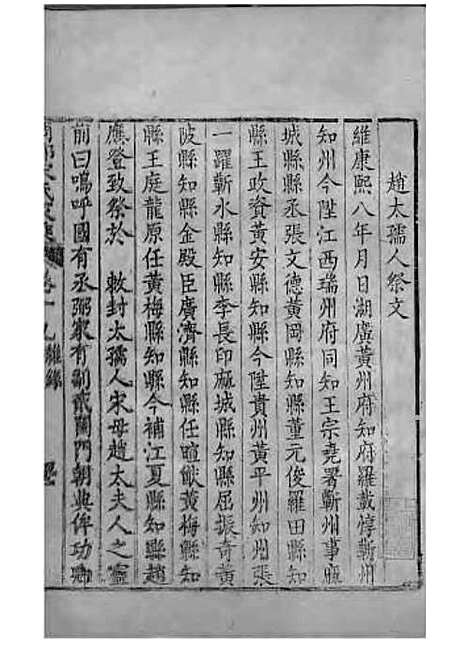 趙太孺人祭文
維康熙八年月日湖廣黃州府知府羅載惇蘄州
知州今陞江西瑞州府同知王宗堯署蘄州事麻
城縣縣丞張文德黃岡縣知縣董元俊羅田縣知
縣王政資黃安縣知縣今陞貴州黃平州知州張
一躍蘄水縣知縣李長印麻城縣知縣屈振奇黃
陂縣知縣金殿臣廣濟縣知縣任暄猷黃梅縣知
縣王庭龍原任黃梅縣知縣今補江夏縣知縣趙
應登致祭於 敕封太孺人宋母趙太夫人之靈
前曰嗚呼國有丞弼家有副貳閫門朝典俾功卿
卷十九雜錄